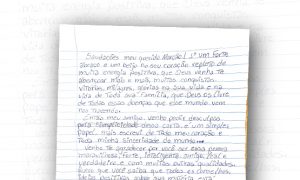 Saudações meu querido Marcão! 1º um forte
abraço e um beijo no seu coração repleto de
muita energia positiva, que Deus venha te
abençoar mais e mais, muitas conquistas
vitórias, milagres, glórias na sua vida e na
vida de toda sua Família, que Deus os livre
de todas essas doenças que esse mundo vem
nos trazendo.
Então meu amigo, venho pedir desculpas
pela simplicidade dessa carta, é um simples
papel mais escrevi de todo meu coração e
toda minha sinceridade do mundo...
Venho te agradecer por você ser essa pessoa
maravilhosa, forte, inteligente, amiga, leal e
verdadeira, e com muitas outras qualidades.
Quero que você saiba que todas os conselhos,
ideias positivas sobre sua minha